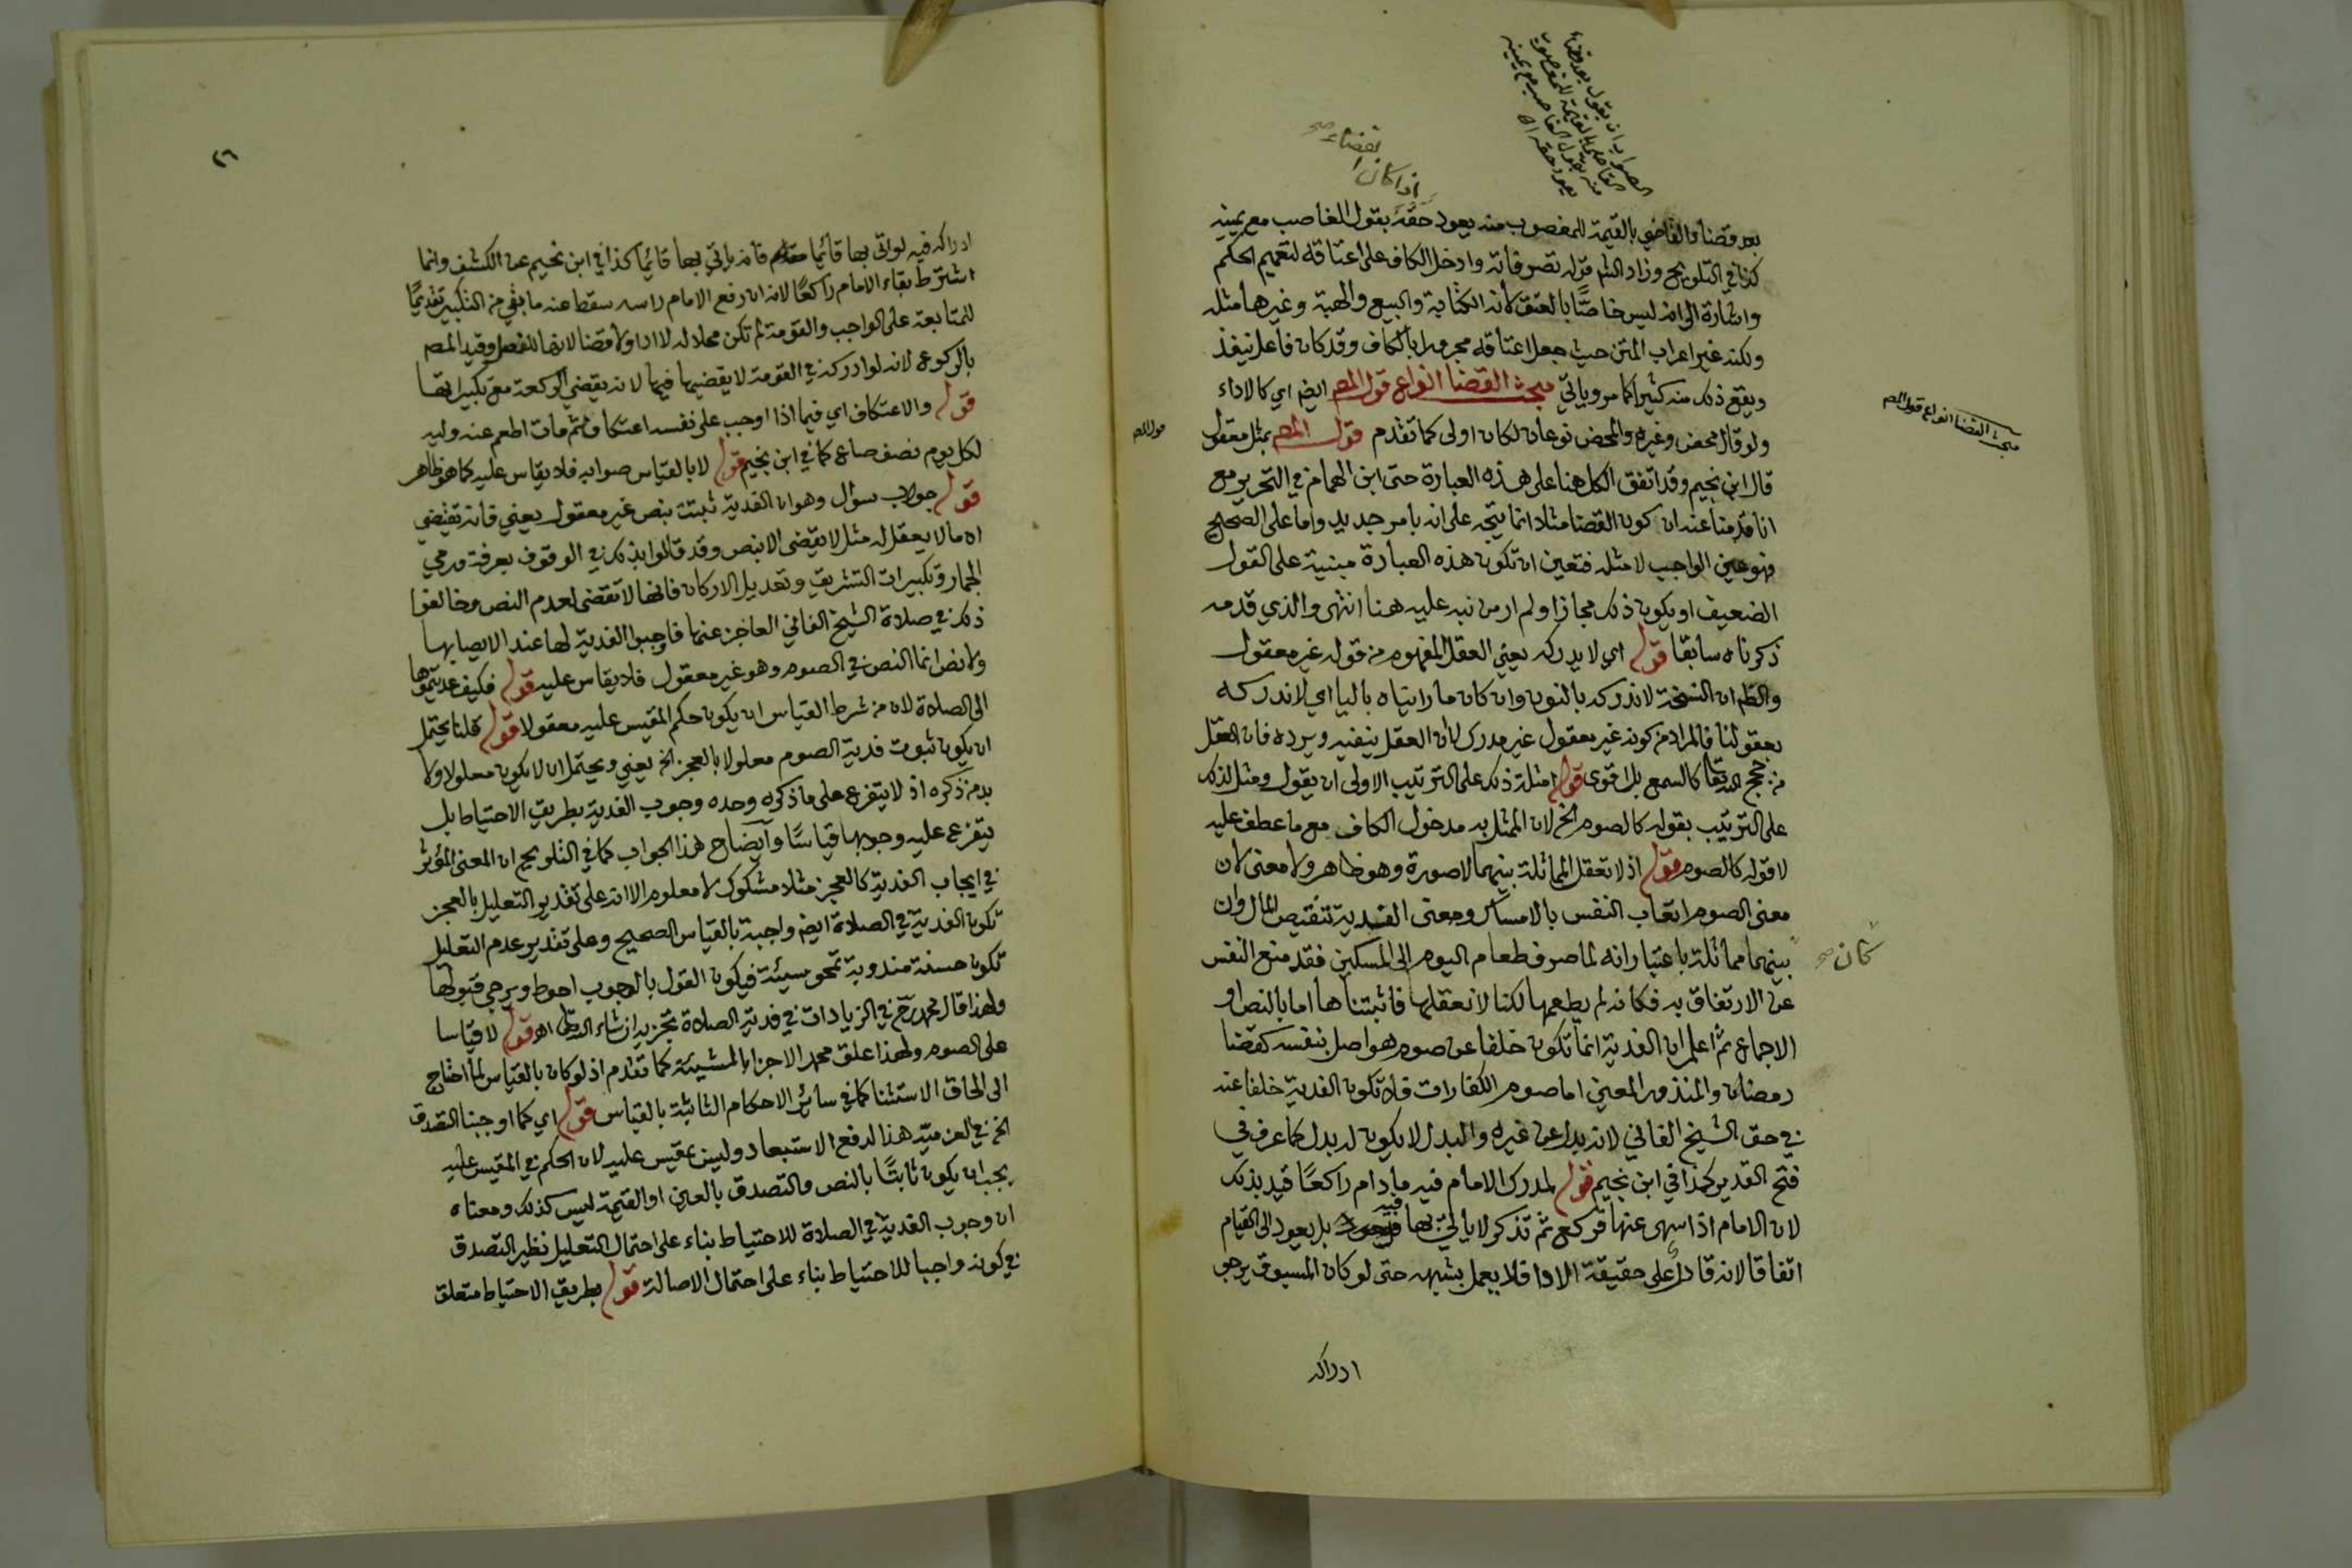 الصواب ان يقول بعد قضاء
القاضي بالقيمة للمغصوب
منه بقول الغاصب مع يمينه
يعود حقه اه
اذا كان
بقضاء صح
بعد قضاء القاضي بالقيمة للمغصوب منه يعود حقه بقول الغاصب مع يمينه
كذا في التلويح وزاد الشم قوله تصرفاته وادخل الكاف على اعتاقه لتعميم الحكم
واشارة الى انه ليس خاصًّا بالعتق لانه الكتابة والبيع والهبة وغيرها مثله
ولكنه غير اعراب المتن حيث جعل اعتاقه مجرورا بالكاف وقد كان فاعل ينفذ
ويقع ذلك منه كثيرا كما مر وياتي مبحث القضا انواع قول المص ايضا اي كالاداء
مبحث القضا انواع قول المص
ولو قال محض وغيره والمحض نوعان لكان اولى كما تقدم قول المص بمثل معقول
قول المص
قال ابن نجيم وقد اتفق الكل هنا على هذه العبارة حتى ابن الهمام في التحرير مع
انا قدمنا عنه ان كون القضا مثلا انما يتجه على انه بامر جديد واما على الصحيح
فهو عين الواجب لا مثله فتعين ان تكون هذه العبارة مبنية على القول
الضعيف او يكون ذلك مجازا ولم ار من نبه عليه هنا انتهى والذي قدمه
ذكرناه سابقا قوله اي لا يدركه يعني العقل المفهوم من قوله غير معقول
والظم ان النسخة لا ندركه بالنون وان كان ما رايناه باليا اي لا ندركه
بعقولنا فالمراد من كونه غير معقول غير مدرك لا ان العقل ينفيه ويرده فان العقل
من حجج الله تعا كالسمع بل اقوى قوله امثلة ذلك على الترتيب الاولى ان يقول ومثل لذلك
على الترتيب بقوله كالصوم الخ لان الممثل به مدخول الكاف مع ما عطف عليه
لا قوله كالصوم قوله اذ لا تعقل المماثلة بينهما لا صورة وهو ظاهر ولا معنى لان
معنى الصوم اتعاب النفس بالامساك ومعنى الفدية تنقيص المال وان
كان صح
بينهما مماثلة باعتبار انه لما صرف طعام اليوم الى المسكين فقد منع النفس
عن الارتفاق به فكانه لم يطعمها لكنا لا نعقلها فاثبتناها اما بالنص او
الاجماع ثم اعلم ان الفدية انما تكون خلفا عن صوم هو اصل بنفسه كقضا
رمضان والمنذور المعين اما صوم الكفارات فلا تكون الفدية خلفا عنه
في حق الشيخ الفاني لانه بدل عن غيره والبدل لا يكون له بدل كما عرف في
فتح القدير كذا في ابن نجيم قوله لمدرك الامام فيه ما دام راكعًا قيد بذلك
لان الامام اذا سهى عنها فركع ثم تذكر لا ياتي بها فيه بل يعود الى القيام
اتفاقا لانه قادر على حقيقة الاداء فلا يعمل بشبهه حتى لو كان المسبوق يرجو
ادراكه
٢٦
ادراكه فيه لو اتى بها قائما فانه ياتي بها قائما كذا في ابن نجيم عن الكشف وانما
اشترط بقاء الامام راكعًا لانه ان رفع الامام راسه سقط عنه ما بقي من التكبير تقديمًا
للمتابعة على الواجب والقومة لم تكن محلا له لا اداء ولا قضا لانها للفصل وقيد المص
بالركوع لانه لو ادركه في القومة لا يقضيها فيها لانه يقضي الركعة مع تكبيراتها
قوله والاعتكاف اي فيما اذا اوجب على نفسه اعتكاف ثم مات اطعم عنه وليه
لكل يوم نصف صاع كما في ابن نجيم قوله لا بالقياس صوابه فلا يقاس عليه كما هو ظاهر
قوله جواب سؤال وهو ان الفدية ثبتت بنص غير معقول يعني فانه تقتضي
ان ما لا يعقل له مثل لا يقضى الا بنص وقد قالوا بذلك في الوقوف بعرفة ورمي
الجمار وتكبيرات التشريق وتعديل الاركان فانها لا تقضى لعدم النص وخالفوا
ذلك في صلاة الشيخ الفاني العاجز عنها فاوجبوا الفدية لها عند الايصا بها
ولا نص انما النص في الصوم وهو غير معقول فلا يقاس عليه قوله فكيف عديتموها
الى الصلاة لان من شرط القياس ان يكون حكم المقيس عليه معقولا قوله قلنا يحتمل
ان يكون ثبوت فدية الصوم معلولا بالعجز الخ يعني ويحتمل ان لا يكون معلولا ولا
بد من ذكره اذ لا يتفرع على ما ذكره وحده وجوب الفدية بطريق الاحتياط بل
يتفرع عليه وجوبها قياسًا وايضاح هذا الجواب كما في التلويح ان المعنى المؤثر
في ايجاب الفدية كالعجز مثلا مشكوك لا معلوم الا انه على تقدير التعليل بالعجز
تكون الفدية في الصلاة ايضا واجبة بالقياس الصحيح وعلى تقدير عدم التعليل
تكون حسنة مندوبة تمحو سيئة فيكون القول بالوجوب احوط ويرجى قبولها
ولهذا قال محمد رح في الزيادات في فدية الصلاة تجزيه ان شاء الله تعالى اه قوله لا قياسا
على الصوم ولهذا علق محمد الاجزا بالمشيئة كما تقدم اذ لو كان بالقياس لما احتاج
الى الحاق الاستثنا كما في سائر الاحكام الثابتة بالقياس قوله اي كما اوجبنا التصدق
الخ في العزمية هذا لدفع الاستبعاد وليس بمقيس عليه لان الحكم في المقيس عليه
يجب ان يكون ثابتًا بالنص والتصدق بالعين او القيمة ليس كذلك ومعناه
ان وجوب الفدية في الصلاة للاحتياط بناء على احتمال التعليل نظير التصدق
في كونه واجبا للاحتياط بناء على احتمال الاصالة قوله بطريق الاحتياط متعلق